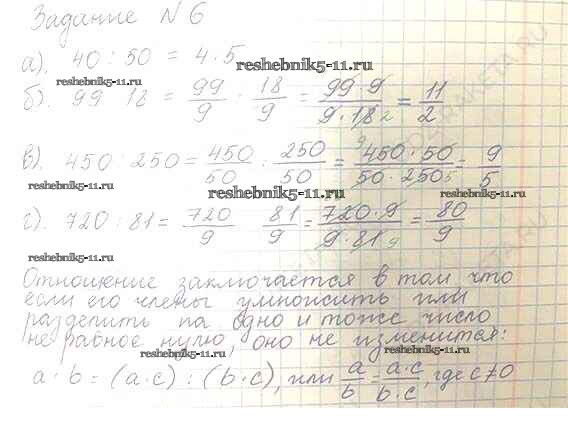 Задание № 6
а). 40 : 50 = 4 : 5
reshebnik5-11.ru
reshebnik5-11.ru
б). 99 18 = 99/9 : 18/9 = 99·9/9·18 2 = 11/2
reshebnik5-11.ru
в). 450 : 250 = 450/50 : 250/50 = 9 450·50/50·250 5 = 9/5
reshebnik5-11.ru
reshebnik5-11.ru
reshebnik5-11.ru
г). 720 : 81 = 720/9 81/9 = 720·9/9·81 9 = 80/9
reshebnik5-11.ru
reshebnik5-11.ru
Отношение заключается в том что
если его члены умножить или
разделить на одно и тоже число
reshebnik5-11.ru
не равное нулю, оно не изменится:
reshebnik5-11.ru
a : b = (a·c) : (b·c), или a/b = a·c/b·c, где c≠0
reshebnik5-11.ru